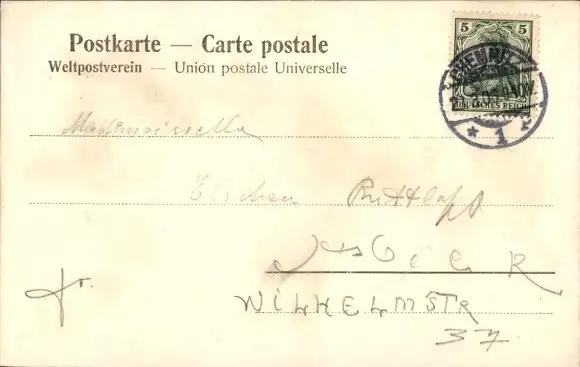 Postkarte — Carte postale
Weltpostverein — Unión postale Universelle
5 5
DEUTSCHES REICH
CHEMNITZ
* 1 *
Mademoiselle
Elschen
fr.
WILHELMSTR
37